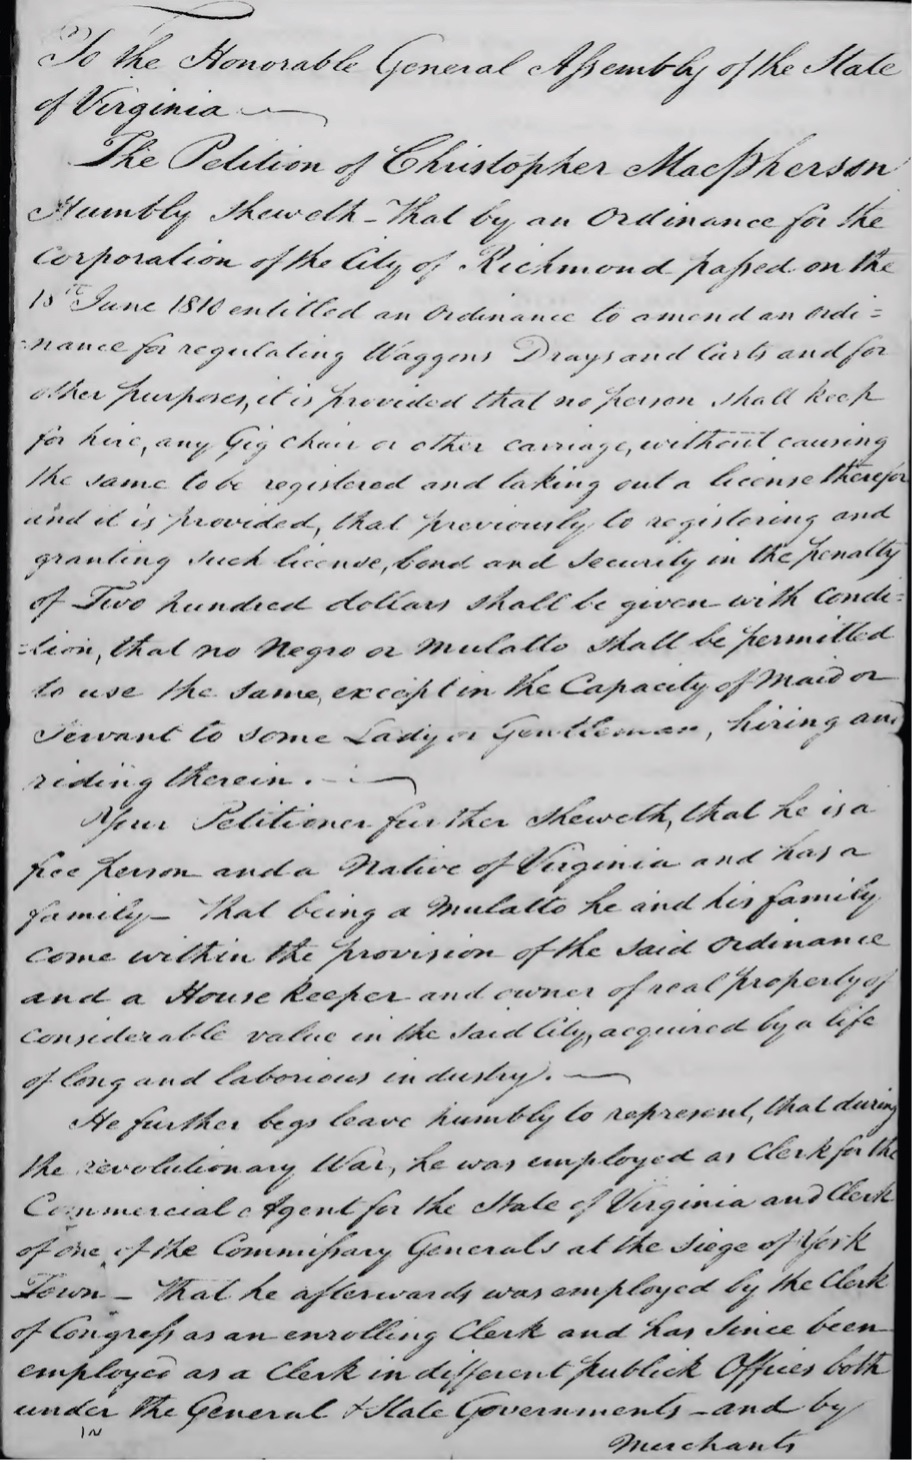 To the Honorable General Assembly of the State
of Virginia —
The Petition of Christopher MacPherson
Humbly Sheweth – That by an Ordinance for the
Corporation of the City of Richmond passed on the
18th June 1810 entitled an Ordinance to amend an ordi=
=nance for regulating Waggons Drays and Carts and for
other purposes, it is provided that no person shall keep
for hire, any Gig Chair or other carriage, without causing
the same to be registered and taking out a license therefor
and it is provided, that previously to registering and
granting such license, bond and security in the penalty
of Two hundred dollars shall be given with condi=
=tion, that no Negro or Mulatto shall be permitted
to use the same, except in the Capacity of Maid or
Servant to some Lady or Gentleman, hiring and
riding therein. —
Your Petitioner further sheweth, that he is a
free person and a Native of Virginia and has a
family – That being a Mulatto he and his family
come within the provision of the said Ordinance
and a House keeper and owner of real property of
considerable value in the said City, acquired by a life
of long and laborious industry. —
He further begs leave humbly to represent, that during
the revolutionary War, he was employed as Clerk for the
Commercial Agent for the State of Virginia and Clerk
of one of the Commissary Generals at the siege of York
Town – That he afterwards was employed by the Clerk
of Congress as an enrolling Clerk and has since been
employed as a Clerk in different publick Offices both
under the General & State Governments – and by
Merchants